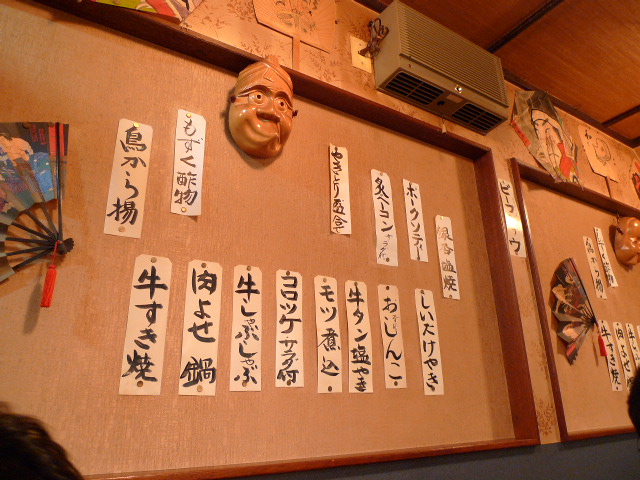 鳥から揚
もずく酢物
やきとり盛合せ
炙ベーコン
ポークソティー
銀杏塩焼
牛すき焼
肉よせ鍋
牛しゃぶしゃぶ
コロッケサラダ付
モツ煮込
牛タン塩やき
おしんこ
しいたけやき